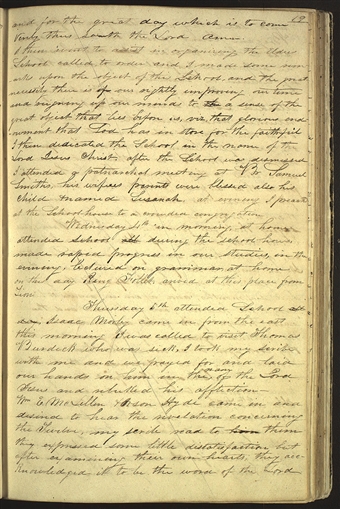 19
and for the great day which is to come
Verily thus saith the Lord Amen.
I then went to assist in organizing the Elders
School called to order and I made some rem-
arks upon the object of this School, and the great
necessity there is of our rightly improving our time
and reigning up our minds to a sense of the
great object that lies before us, viz, that glorious end-
owment that God has in store for the faithful
I then dedicated the School in the name of the
Lord Jesus Christ. after the School was dismissed
I attended a patriarchal meeting at Br Samuel
Smiths, his wifeses parents were blessed also his
child named Susanah, at evening I preach
at the School house to a crowded congregation
Wednesday 4th in morning, at home
attended school all during the school hours
made rapid progress in our studies, in the
evening, lectured on grammar, at home
on this day King Follet arrived at this place from
Zion
Thursday 5th attended School all
day, Isaac Morley came in from the east
this morning I was called to visit Thomas
Burdick who was sick, I took my scribe
with me and we prayed for and laid
our hands on him in the name of the Lord
Jesus and rebuked his affliction—
Wm E. McLellen & Orson Hyde came in and
desired to hear the revelation concerning
the Twelve, my scribe read to him them
they expressed some little dissatisfaction but
after examining their own hearts, they ack-
knowledged it to be the word of the Lord